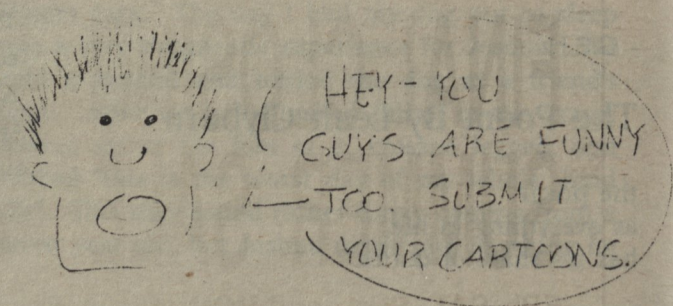 HEY - YOU
GUYS ARE FUNNY
TOO. SUBMIT
YOUR CARTOONS.